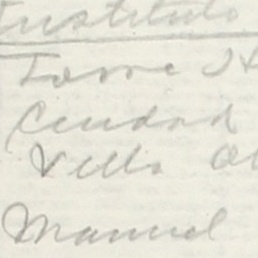 Instituto
Torre H
Ciudad
Villa Ob
Manuel